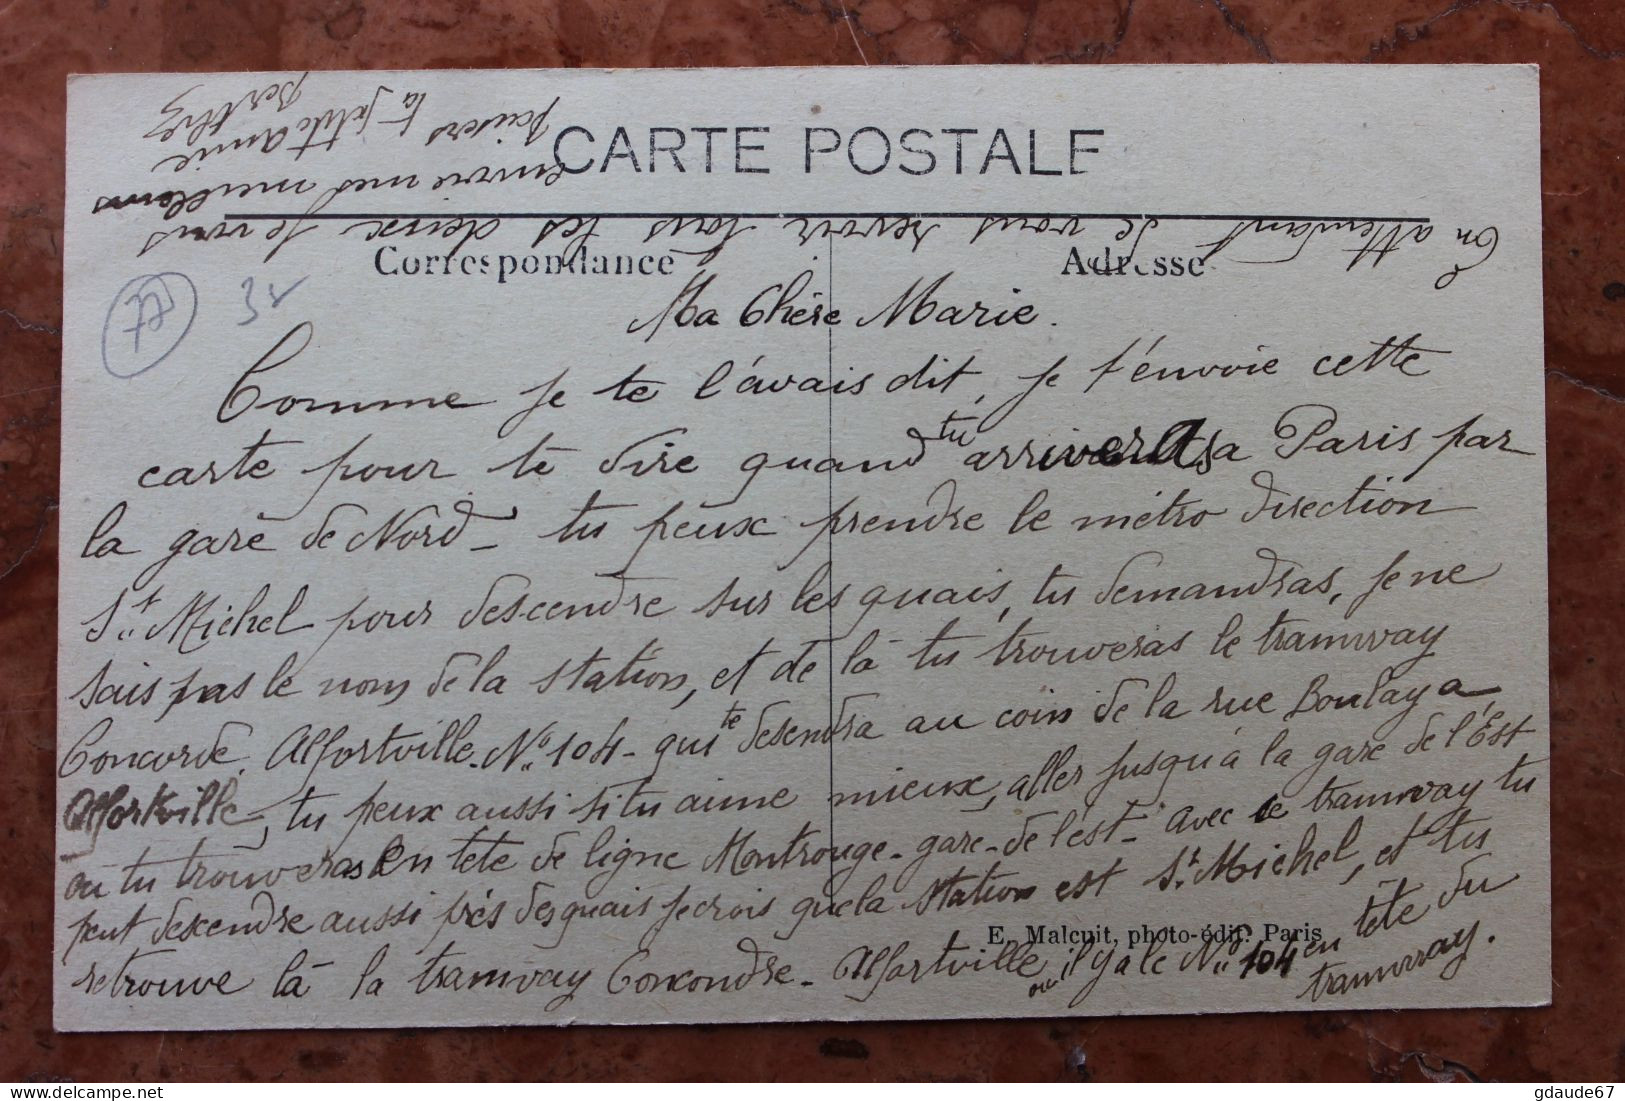 CARTE POSTALE
Correspondance
Adresse
78
Ma Chère Marie.
Comme je te l'avais dit, je t'envoie cette
carte pour te dire quand tu arriveras a Paris par
la gare de Nord - tu peux prendre le métro direction
St Michel pour descendre sur les quais, tu demandras, je ne
sais pas le nom de la station, et de là tu trouveras le tramway
Concorde. Alfortville. No 104 - qui te desendra au coin de la rue Boulay a
Alfortville, tu peux aussi si tu aime mieux, aller jusqu'à la gare de l'Est
où tu trouveras en tete de ligne Montrouge - gare - de l'est - avec ce tramway tu
peut descendre aussi près des quais je crois que la station est St Michel, et tu
retrouve là la tramway Concondre - Alfortville ou il y a le No 104 en tête du
tramway.
En attendant de vous revoir tous les deux je vous
envoie mes meilleurs
baisers
la petite Annie
E. Malcuit, photo-édit. Paris
https://www.delcampe.net
gdaude67